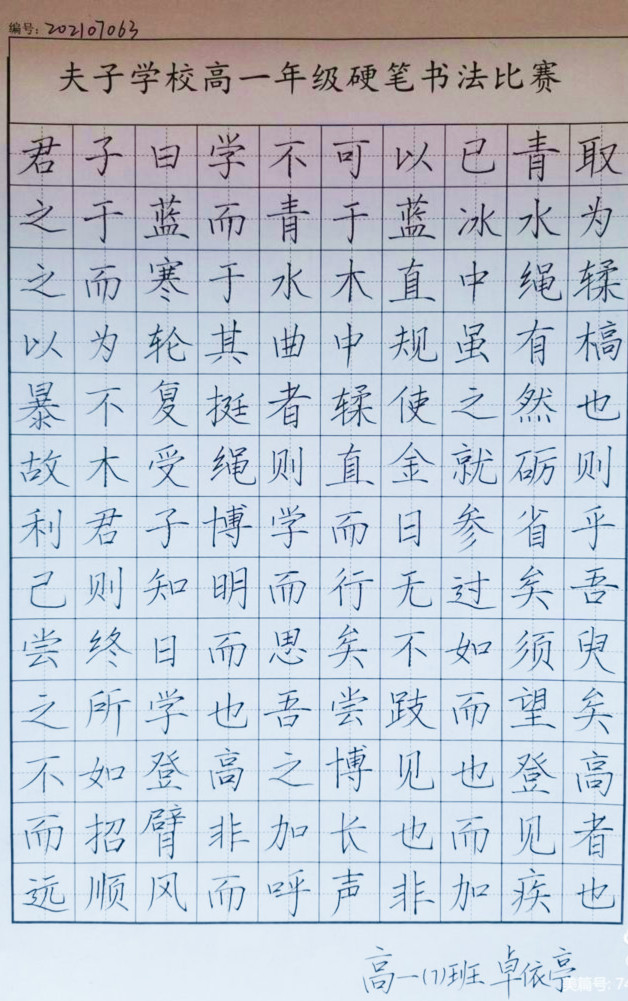 编号：202107063
夫子学校高一年级硬笔书法比赛
君子曰学不可以已青取
之于蓝而青于蓝冰水为
之而寒于水木直中绳輮
以为轮其曲中规虽有槁
暴不复挺者輮使之然也
故木受绳则直金就砺则
利君子博学而日参省乎
己则知明而行无过矣吾
尝终日而思矣不如须臾
之所学也吾尝跂而望矣
不如登高之博见也登高
而招臂非加长也而见者
远顺风而呼声非加疾也
高一(7)班 卓依亭
美篇号: 74